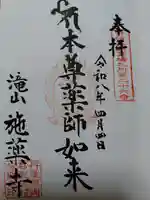 奉拝
令和八年四月四日
本尊薬師如来
滝山 施薬寺